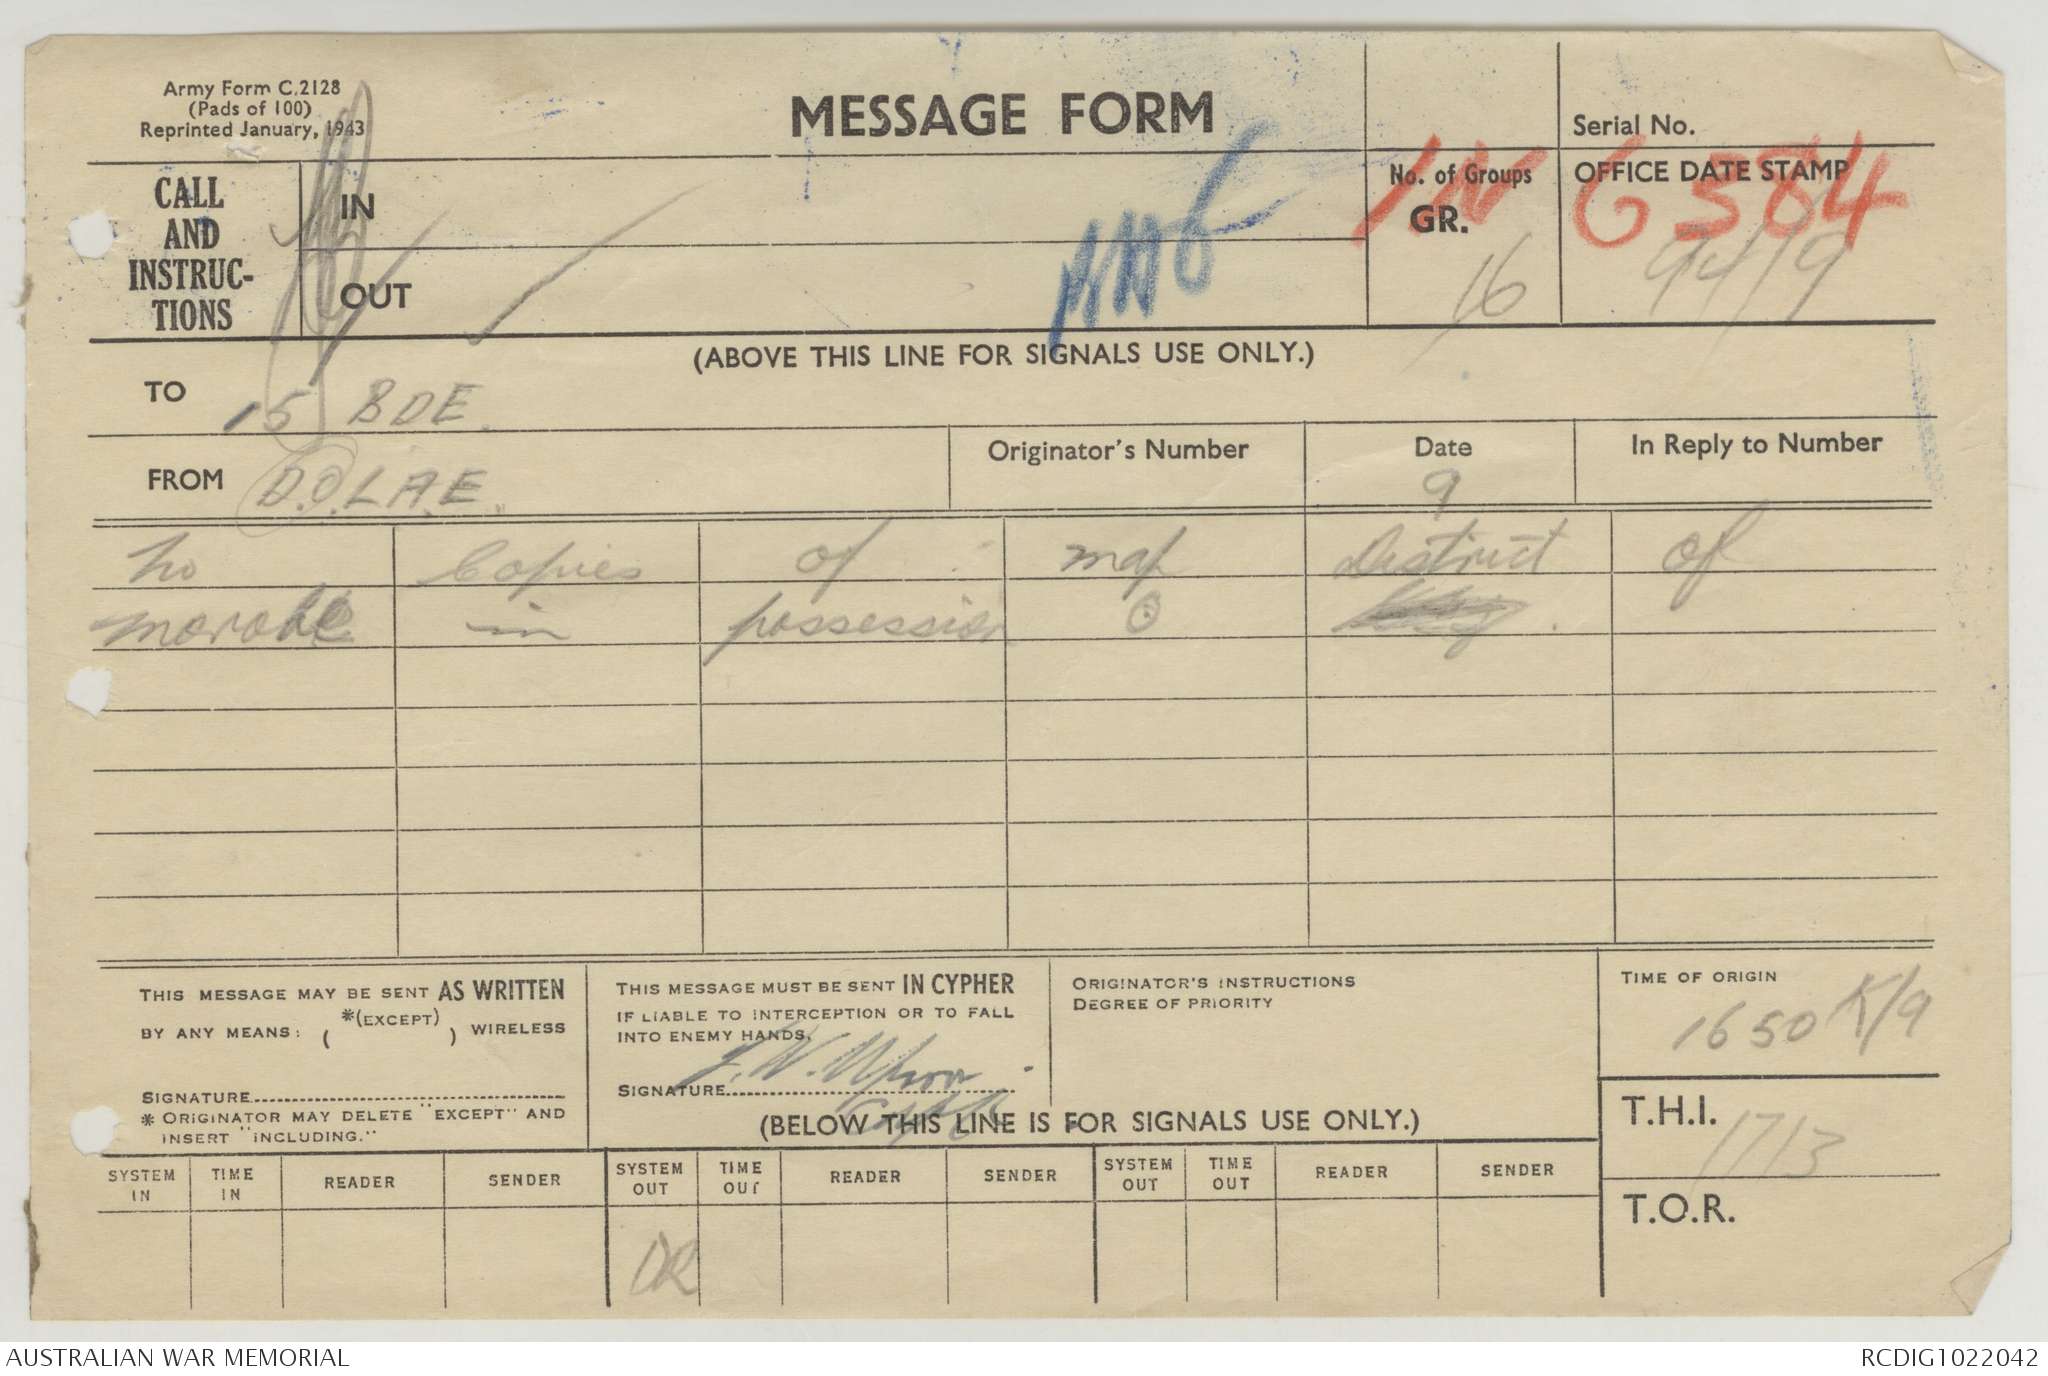 Army Form C.2128
(Pads of 100)
Reprinted January, 1943
MESSAGE FORM
Serial No.
CALL AND INSTRUC-TIONS
IN
OUT
No. of Groups
GR.
16
OFFICE DATE STAMP
IN G 584
(ABOVE THIS LINE FOR SIGNALS USE ONLY.)
TO 15 BDE.
FROM D.O. LAE.
Originator's Number
Date
9
In Reply to Number
no copies of map District of
morobe in possession
THIS MESSAGE MAY BE SENT AS WRITTEN
BY ANY MEANS: ( *(EXCEPT) ) WIRELESS
SIGNATURE
* ORIGINATOR MAY DELETE "EXCEPT" AND
INSERT "INCLUDING."
THIS MESSAGE MUST BE SENT IN CYPHER
IF LIABLE TO INTERCEPTION OR TO FALL
INTO ENEMY HANDS.
SIGNATURE
ORIGINATOR'S INSTRUCTIONS
DEGREE OF PRIORITY
TIME OF ORIGIN
1650 K/9
(BELOW THIS LINE IS FOR SIGNALS USE ONLY.)
T.H.I.
1713
T.O.R.
SYSTEM IN
TIME IN
READER
SENDER
SYSTEM OUT
TIME OUT
READER
SENDER
SYSTEM OUT
TIME OUT
READER
SENDER
DR
AUSTRALIAN WAR MEMORIAL
RCDIG1022042